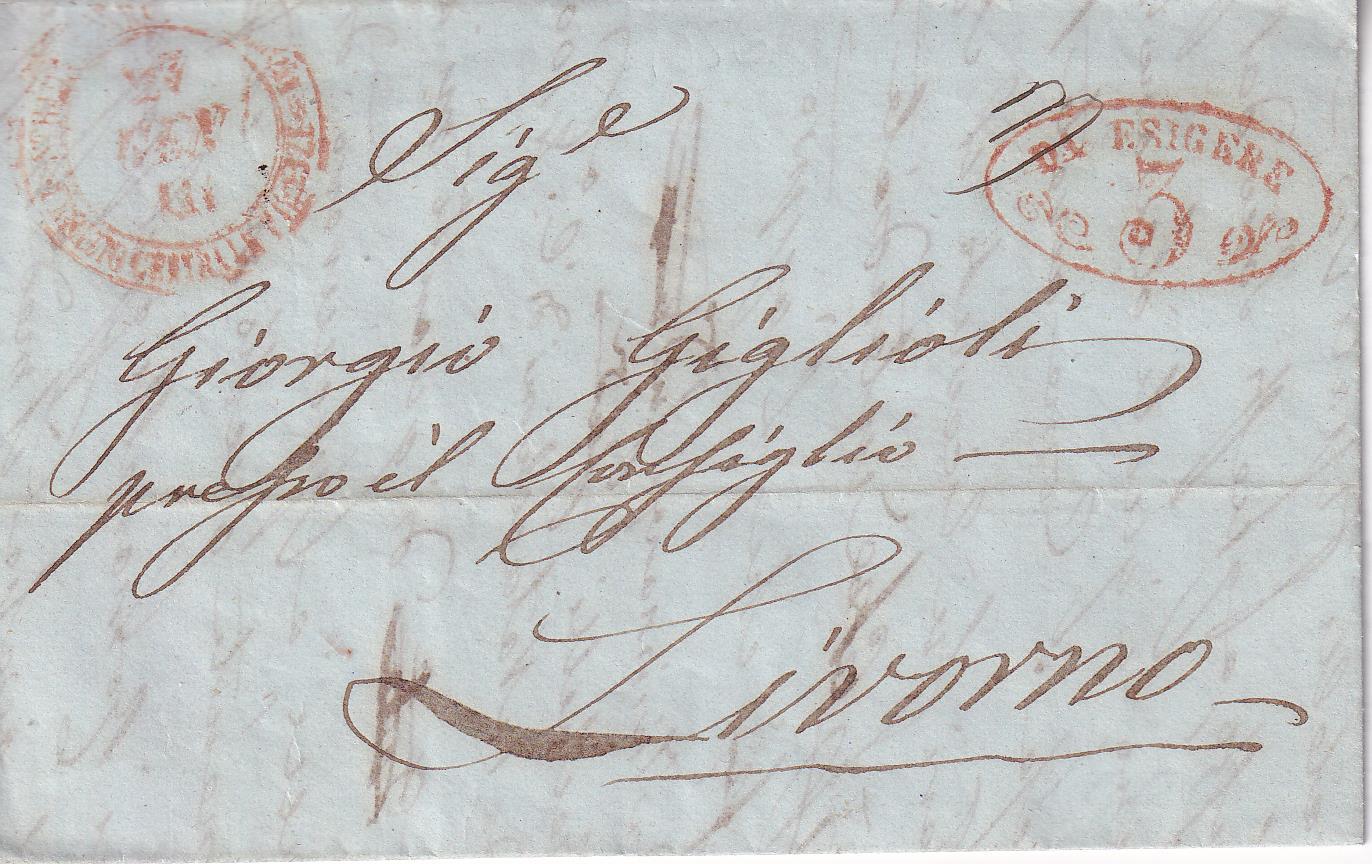 GEN
DA ESIGERE
3
Sig.e
Giorgio Giglioli
presso il Consiglio
Livorno